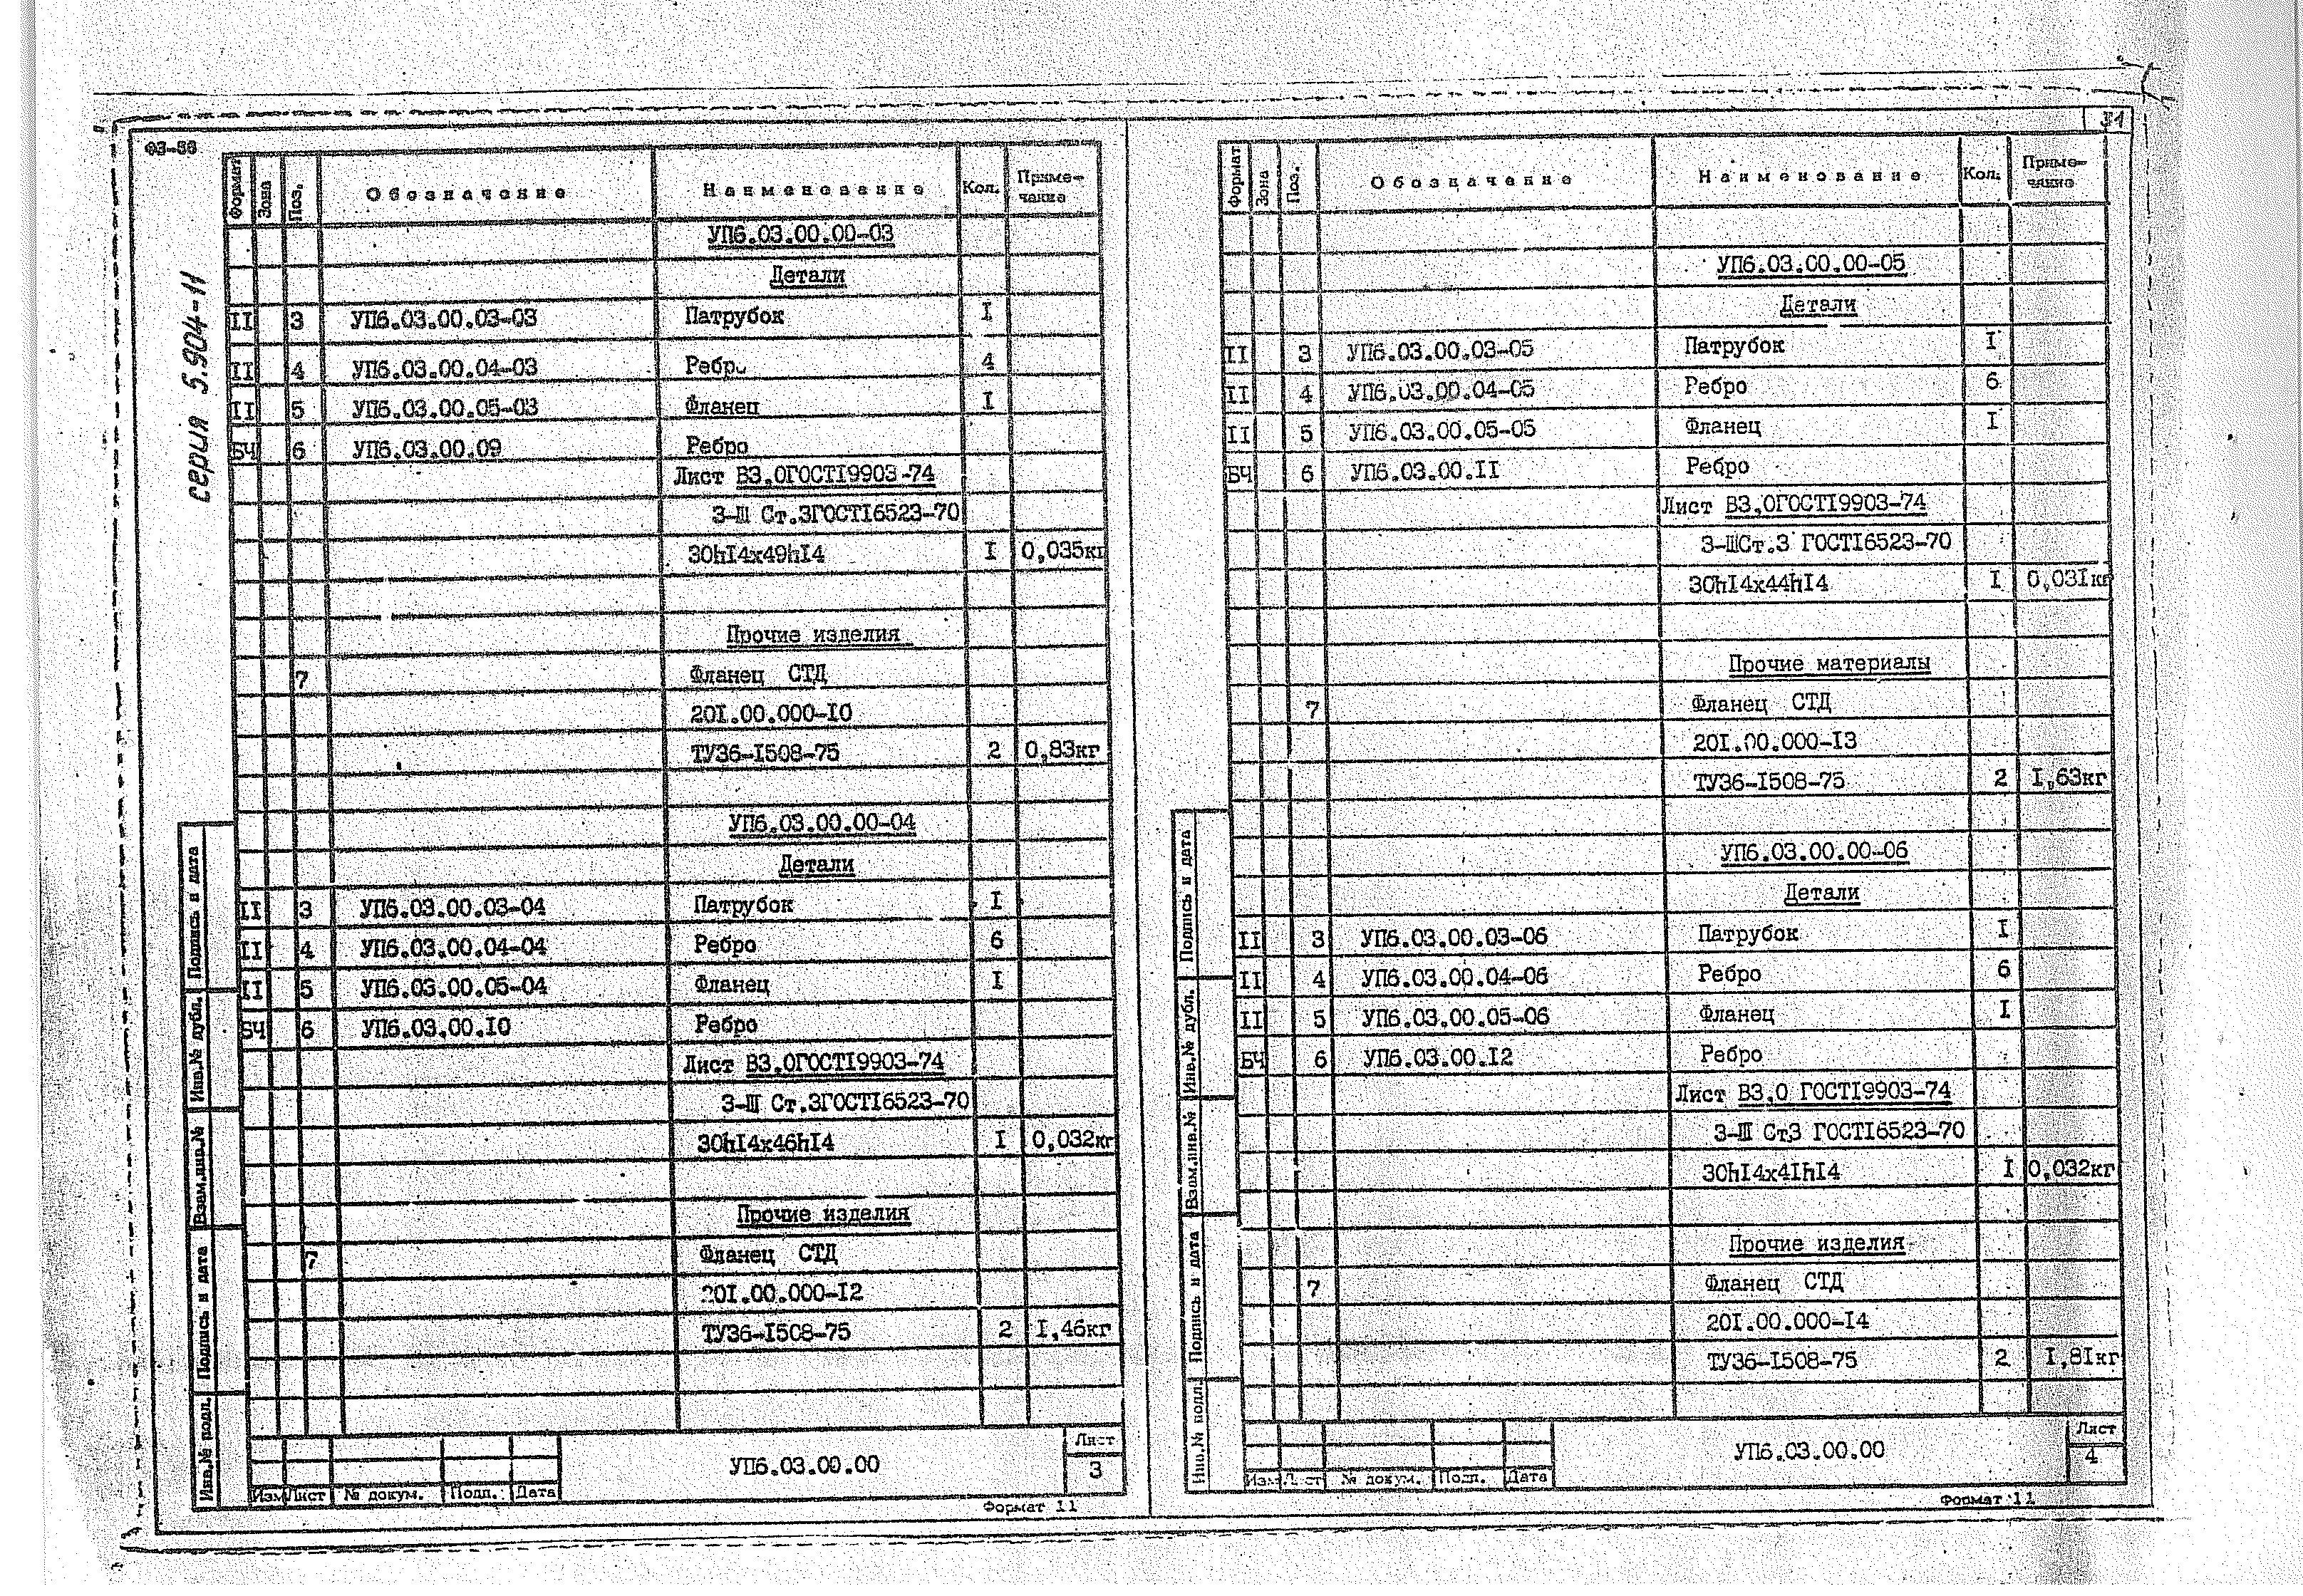 31
ФЗ-58
серия 5.904-11
Формат Зона Поз. Обозначение Наименование Кол. Примечание
УП6.03.00.00-03
Детали
II 3 УП6.03.00.03-03 Патрубок I
II 4 УП6.03.00.04-03 Ребро 4
II 5 УП6.03.00.05-03 Фланец I
БЧ 6 УП6.03.00.09 Ребро
Лист В3.0ГОСТI9903-74
3-III Ст.3ГОСТI6523-70
30hI4x49hI4 I 0,035кг
Прочие изделия
7 Фланец СТД
20I.00.000-I0
ТУ36-I508-75 2 0,83кг
УП6.03.00.00-04
Детали
II 3 УП6.03.00.03-04 Патрубок I
II 4 УП6.03.00.04-04 Ребро 6
II 5 УП6.03.00.05-04 Фланец I
БЧ 6 УП6.03.00.I0 Ребро
Лист В3.0ГОСТI9903-74
3-III Ст.3ГОСТI6523-70
30hI4x46hI4 I 0,032кг
Прочие изделия
7 Фланец СТД
20I.00.000-I2
ТУ36-I508-75 2 I,46кг
Подпись и дата
Инв.№ дубл.
Взам.инв.№
Подпись и дата
Инв.№ подл.
Изм Лист № докум. Подп. Дата
УП6.03.00.00
Лист
3
Формат 11
Формат Зона Поз. Обозначение Наименование Кол. Примечание
УП6.03.00.00-05
Детали
II 3 УП6.03.00.03-05 Патрубок I
II 4 УП6.03.00.04-05 Ребро 6
II 5 УП6.03.00.05-05 Фланец I
БЧ 6 УП6.03.00.II Ребро
Лист В3.0ГОСТI9903-74
3-IIIСт.3 ГОСТI6523-70
30hI4x44hI4 I 0,03Iкг
Прочие материалы
7 Фланец СТД
20I.00.000-I3
ТУ36-I508-75 2 I,63кг
УП6.03.00.00-06
Детали
II 3 УП6.03.00.03-06 Патрубок I
II 4 УП6.03.00.04-06 Ребро 6
II 5 УП6.03.00.05-06 Фланец I
БЧ 6 УП6.03.00.I2 Ребро
Лист В3.0 ГОСТI9903-74
3-III Ст3 ГОСТI6523-70
30hI4x4IhI4 I 0,032кг
Прочие изделия
7 Фланец СТД
20I.00.000-I4
ТУ36-I508-75 2 I,8Iкг
Подпись и дата
Инв.№ дубл.
Взам.инв.№
Подпись и дата
Инв.№ подл.
Изм Лист № докум. Подп. Дата
УП6.03.00.00
Лист
4
Формат 11